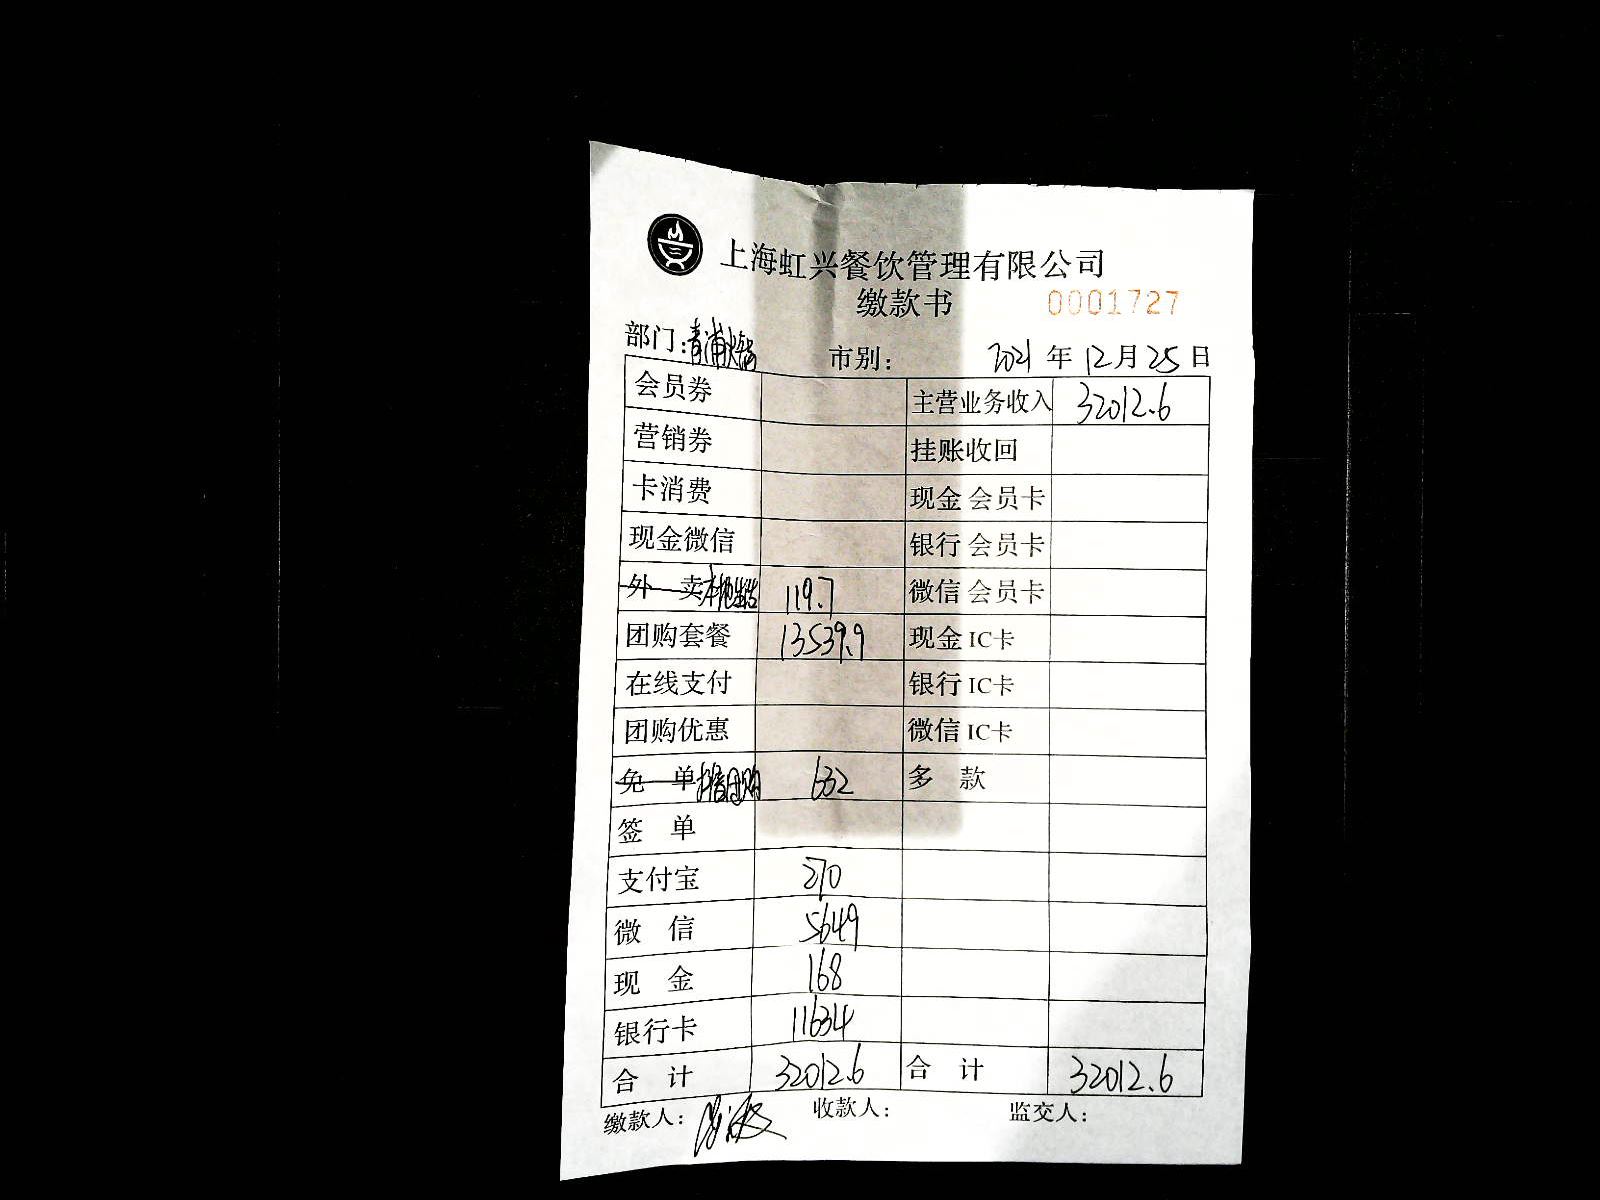 上海虹兴餐饮管理有限公司
缴款书 0001727
部门：青浦火锅 市别： 2021 年 12 月 25 日
会员券 主营业务收入 32012.6
营销券 挂账收回
卡消费 现金 会员卡
现金微信 银行 会员卡
外 卖 119.7 微信 会员卡
团购套餐 13539.9 现金 IC卡
在线支付 银行 IC卡
团购优惠 微信 IC卡
免 单 团购 632 多 款
签 单
支付宝 270
微 信 5649
现 金 168
银行卡 11634
合 计 32012.6 合 计 32012.6
缴款人： 收款人： 监交人：